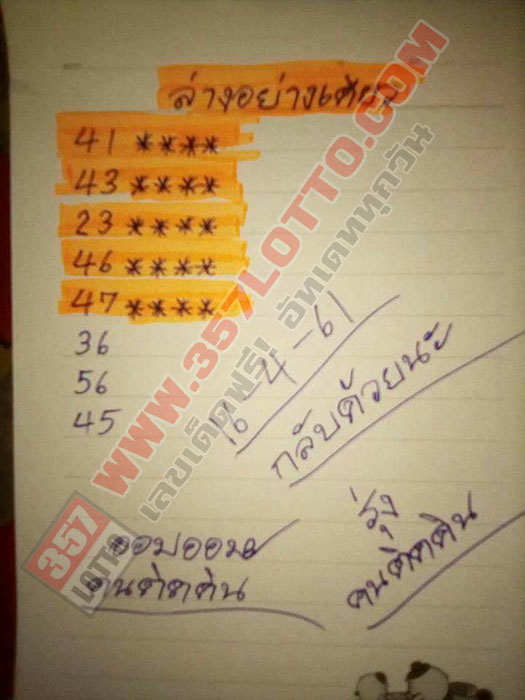 ล่างอย่างเดียว
41 ****
43 ****
23 ****
46 ****
47 ****
36
56
45
16-4-61
กลับด้วยนะ
รุ่ง
คนติดดิน
ออมออม
คนติดดิน
WWW.357LOTTO.COM
เลขเด็ดฟรี! อัพเดททุกวัน
357
LOTTO